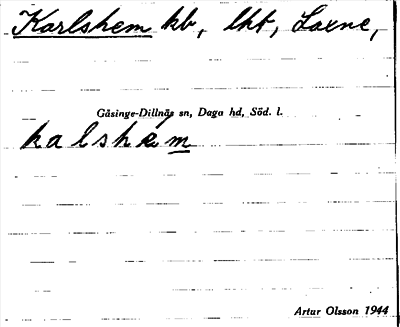 Karlshem kb, lht, Laxne,
Gåsinge-Dillnäs sn, Daga hd, Söd. l.
kalshém
Artur Olsson 1944